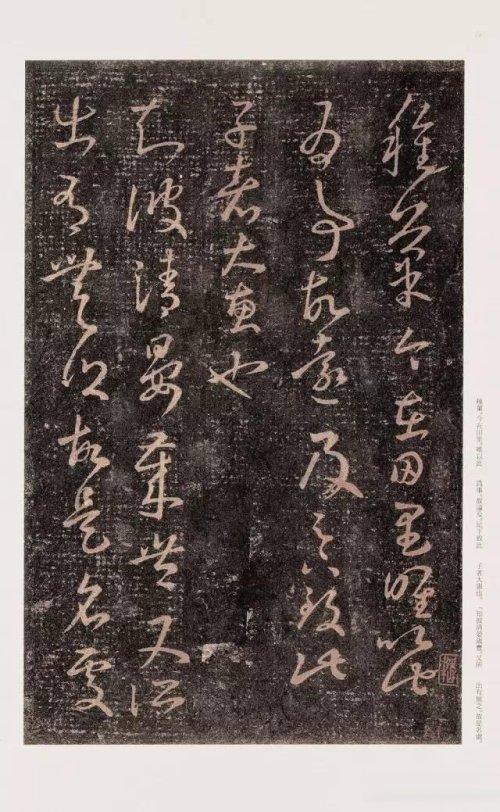 種菓今在田里唯以此　為事故遠及足下致此　子者大惠也。「知彼清晏歲豐又所　出有無乏故是名處。
種菓今在田里唯以此
為事故遠及足下致此
子者大惠也
知彼清晏歲豐又所
出有無乏故是名處